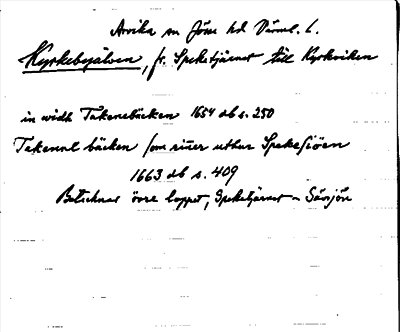 Arvika sn Jösse hd Värml. l.
Kyrkebyälven, fr. Speketjärnet till Kyrkviken
in widh Takenebäcken 1654 db s. 250
Takennebäcken som rinner uthur Spekesiöen
1663 db s. 409
Betecknar övre loppet, Speketjärnet – Sävsjön